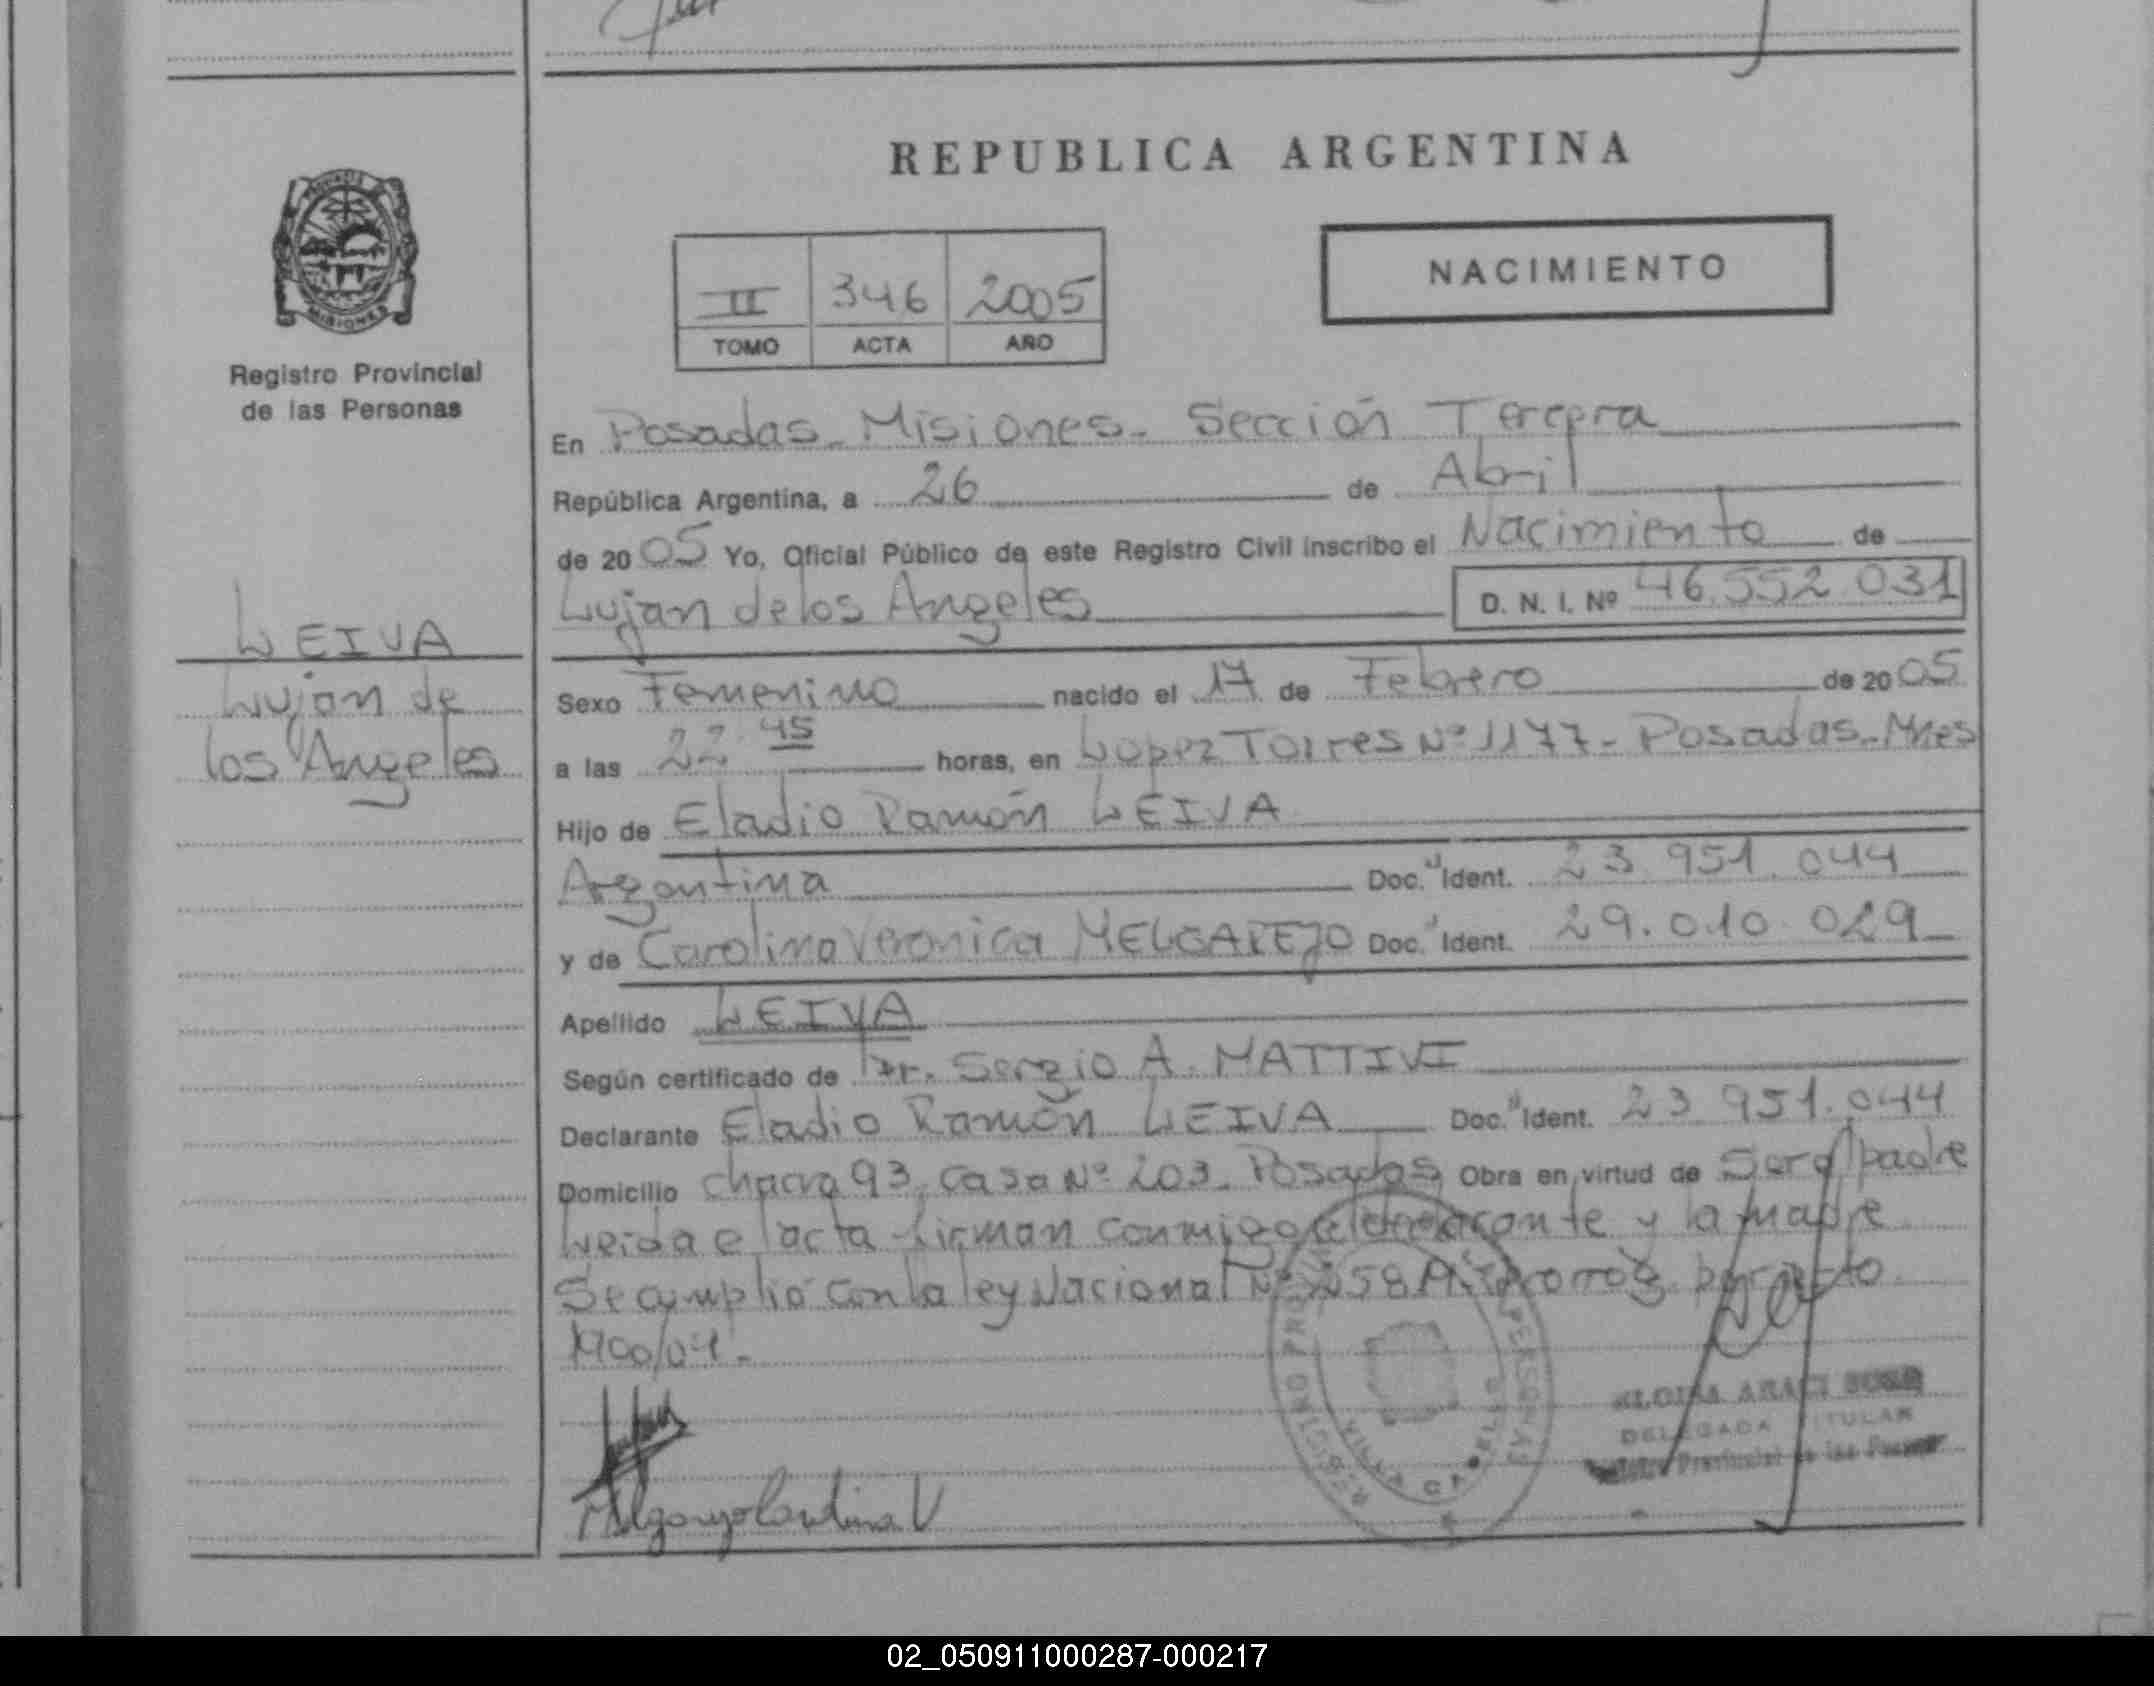 REPUBLICA ARGENTINA
NACIMIENTO
II 346 2005
TOMO ACTA AÑO
MISIONES
Registro Provincial
de las Personas
LEIVA
Lujan de
los Angeles
En Posadas - Misiones - Sección Tercera
República Argentina, a 26 de Abril
de 2005 Yo, Oficial Público de este Registro Civil inscribo el Nacimiento de
Lujan de los Angeles D. N. I. Nº 46.552.031
Sexo Femenino nacido el 17 de Febrero de 2005
a las 22 45 horas, en Lopez Torres Nº 1177 - Posadas - Mnes
Hijo de Eladio Ramón LEIVA
Argentina Doc. Ident. 23.951.044
y de Carolina Veronica MELGAREJO Doc. Ident. 29.010.029
Apellido LEIVA
Según certificado de Dr. Sergio A. MATTIVI
Declarante Eladio Ramón LEIVA Doc. Ident. 23.951.044
Domicilio chacra 93 casa Nº 203 - Posadas Obra en virtud de Ser el padre
Leida el acta firman conmigo el declarante y la madre
Se cumplió con la ley Nacional Nº
REGISTRO PERSONAS
VILLA CABELLO
DELEGADA TITULAR
Provincial de las
Melgarejo Carolina V
02_050911000287-000217